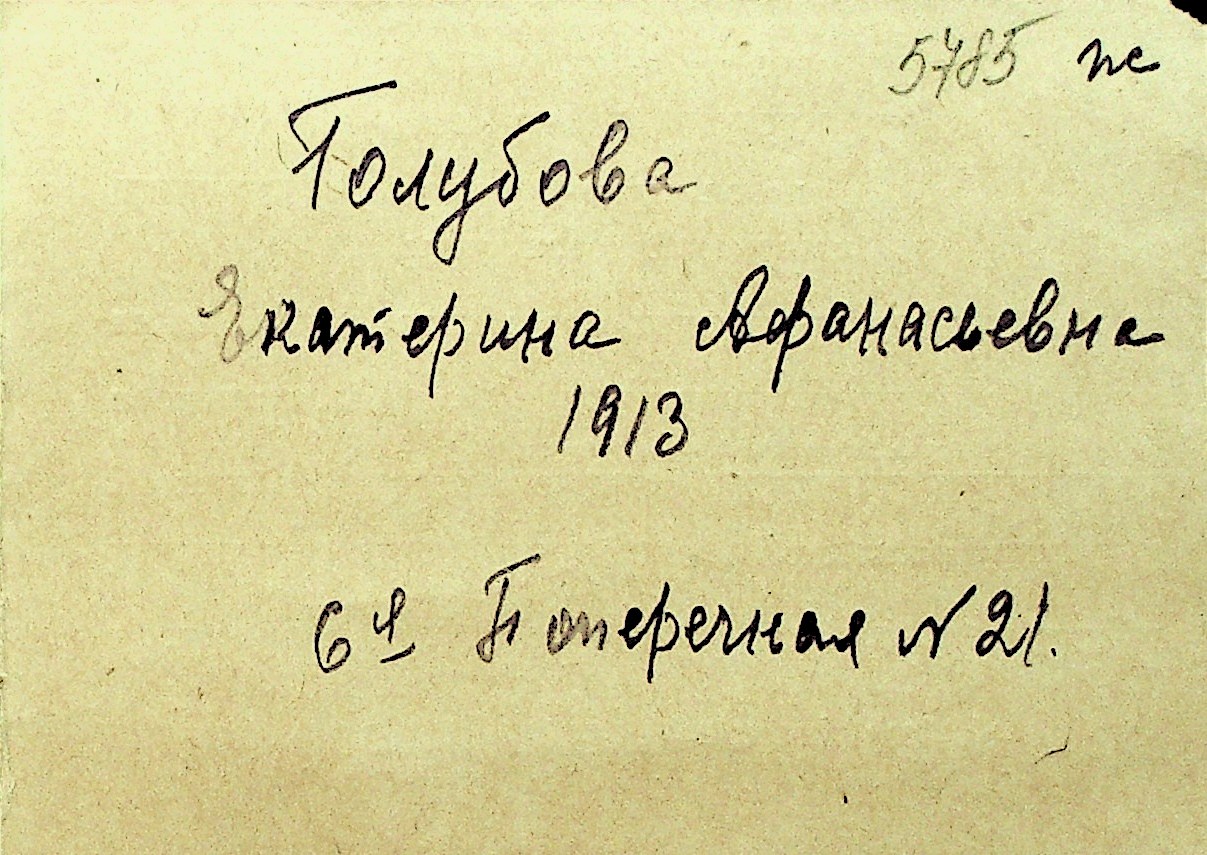 5785 пс
Голубова
Екатерина Афанасьевна
1913
6я Поперечная № 21.